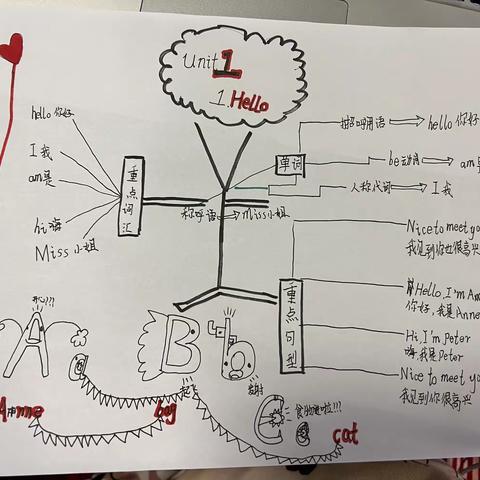 Unit 1
1. Hello
hello 你好
I 我
am是
hi 嗨
Miss 小姐
重点词汇
单词
招呼用语 hello 你好
be动词 am是
人称代词 I 我
称呼语 Miss小姐
重点句型
Nice to meet you
我见到你也很高兴
Hello, I'm Anne
你好,我是Anne
Hi, I'm Peter
嗨,我是Peter
Nice to meet you
我见到你很高兴
A
B
C
Anne
bag
cat
起飞
发射